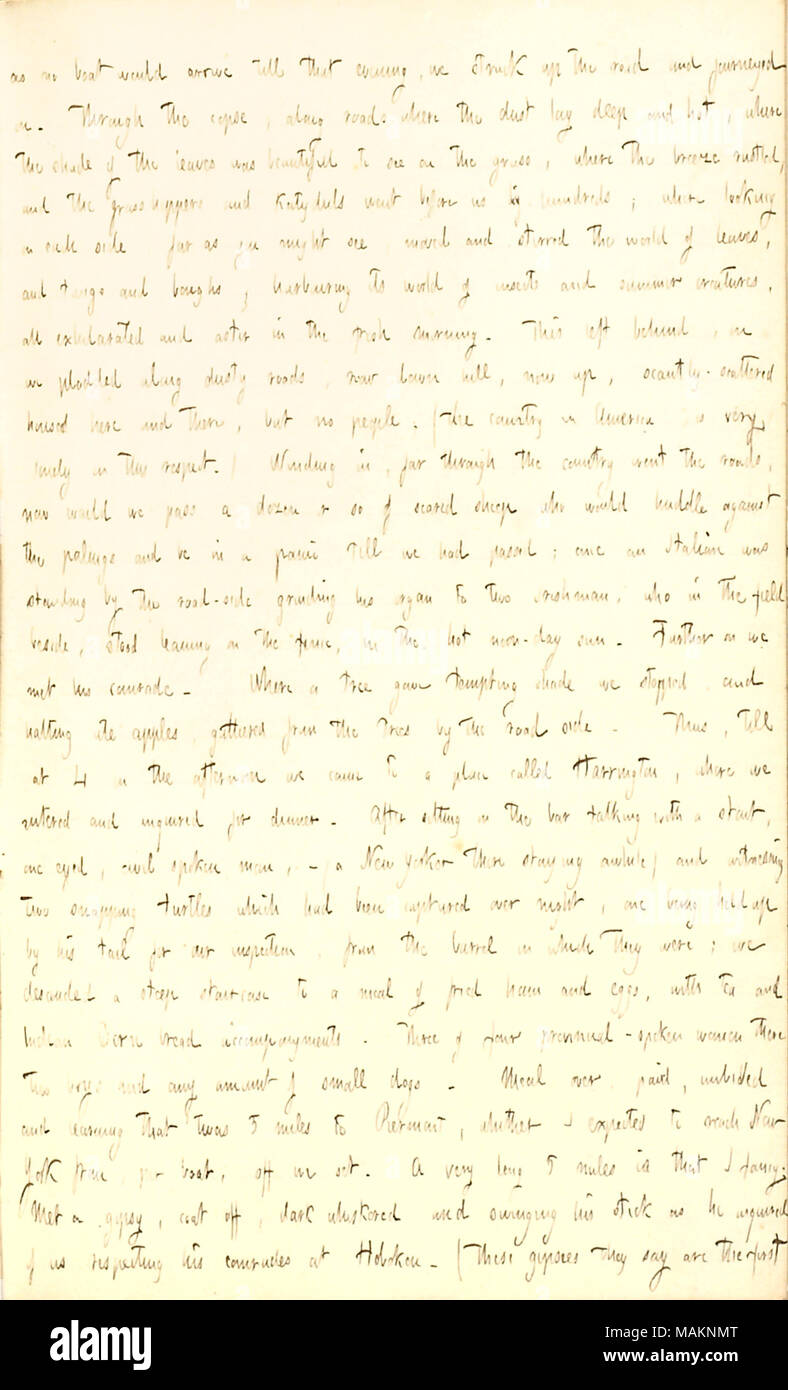 as no boat would arrive till that evening, we struck up the road and journeyed
on. Through the copse, along roads where the dust lay deep and hot, where
the shade of the leaves was beautiful to see on the grass, where the breeze rustled,
and the grasshoppers and katydids went before us by hundreds; where looking
on each side far as you might see, moved and stirred the world of leaves,
and twigs and boughs, harbouring its world of insects and summer creatures,
all exhilarated and astir in the fresh morning. This left behind, on
we plodded along dusty roads, now down hill, now up, scantly-scattered
houses here and there, but no people. (The country in America is very
lonely in this respect.) Winding in, far through the country went the roads,
now would we pass a dozen or so of scared sheep who would huddle against
the palings and be in a panic till we had passed; once an Italian was
standing by the road-side grinding his organ to two Irishman, who in the field
beside, stood leaning on the fence, in the hot noon-day sun. Further on we
met his comrade. Where a tree gave tempting shade we stopped, and
halting ate apples, gathered from the trees by the road side. Thus, till
at 4 in the afternoon we came to a place called Harrington, where we
entered and inquired for dinner. After sitting in the bar talking with a stout,
one eyed, civil spoken man, - (a New Yorker there staying awhile) and witnessing
two snapping turtles which had been captured over night, one being held up
by his tail for our inspection, from the barrel in which they were; we
descended a steep staircase to a meal of fried ham and eggs, with tea and
Indian Corn bread accompanyments. Three of four provincial-spoken women there
two boys and any amount of small dogs. Meal over, paid,
and learning that twas 5 miles to Piermont, whither I expected to reach New
York from, per boat, off we set. A very long 5 miles is that I fancy.
Met a gypsy, coat off, dark whiskered and swinging his stick as he inquired
of us respecting his comrades at Hoboken. (These gipsies they say are the first
alamy
Image ID: MAKNMT
www.alamy.com